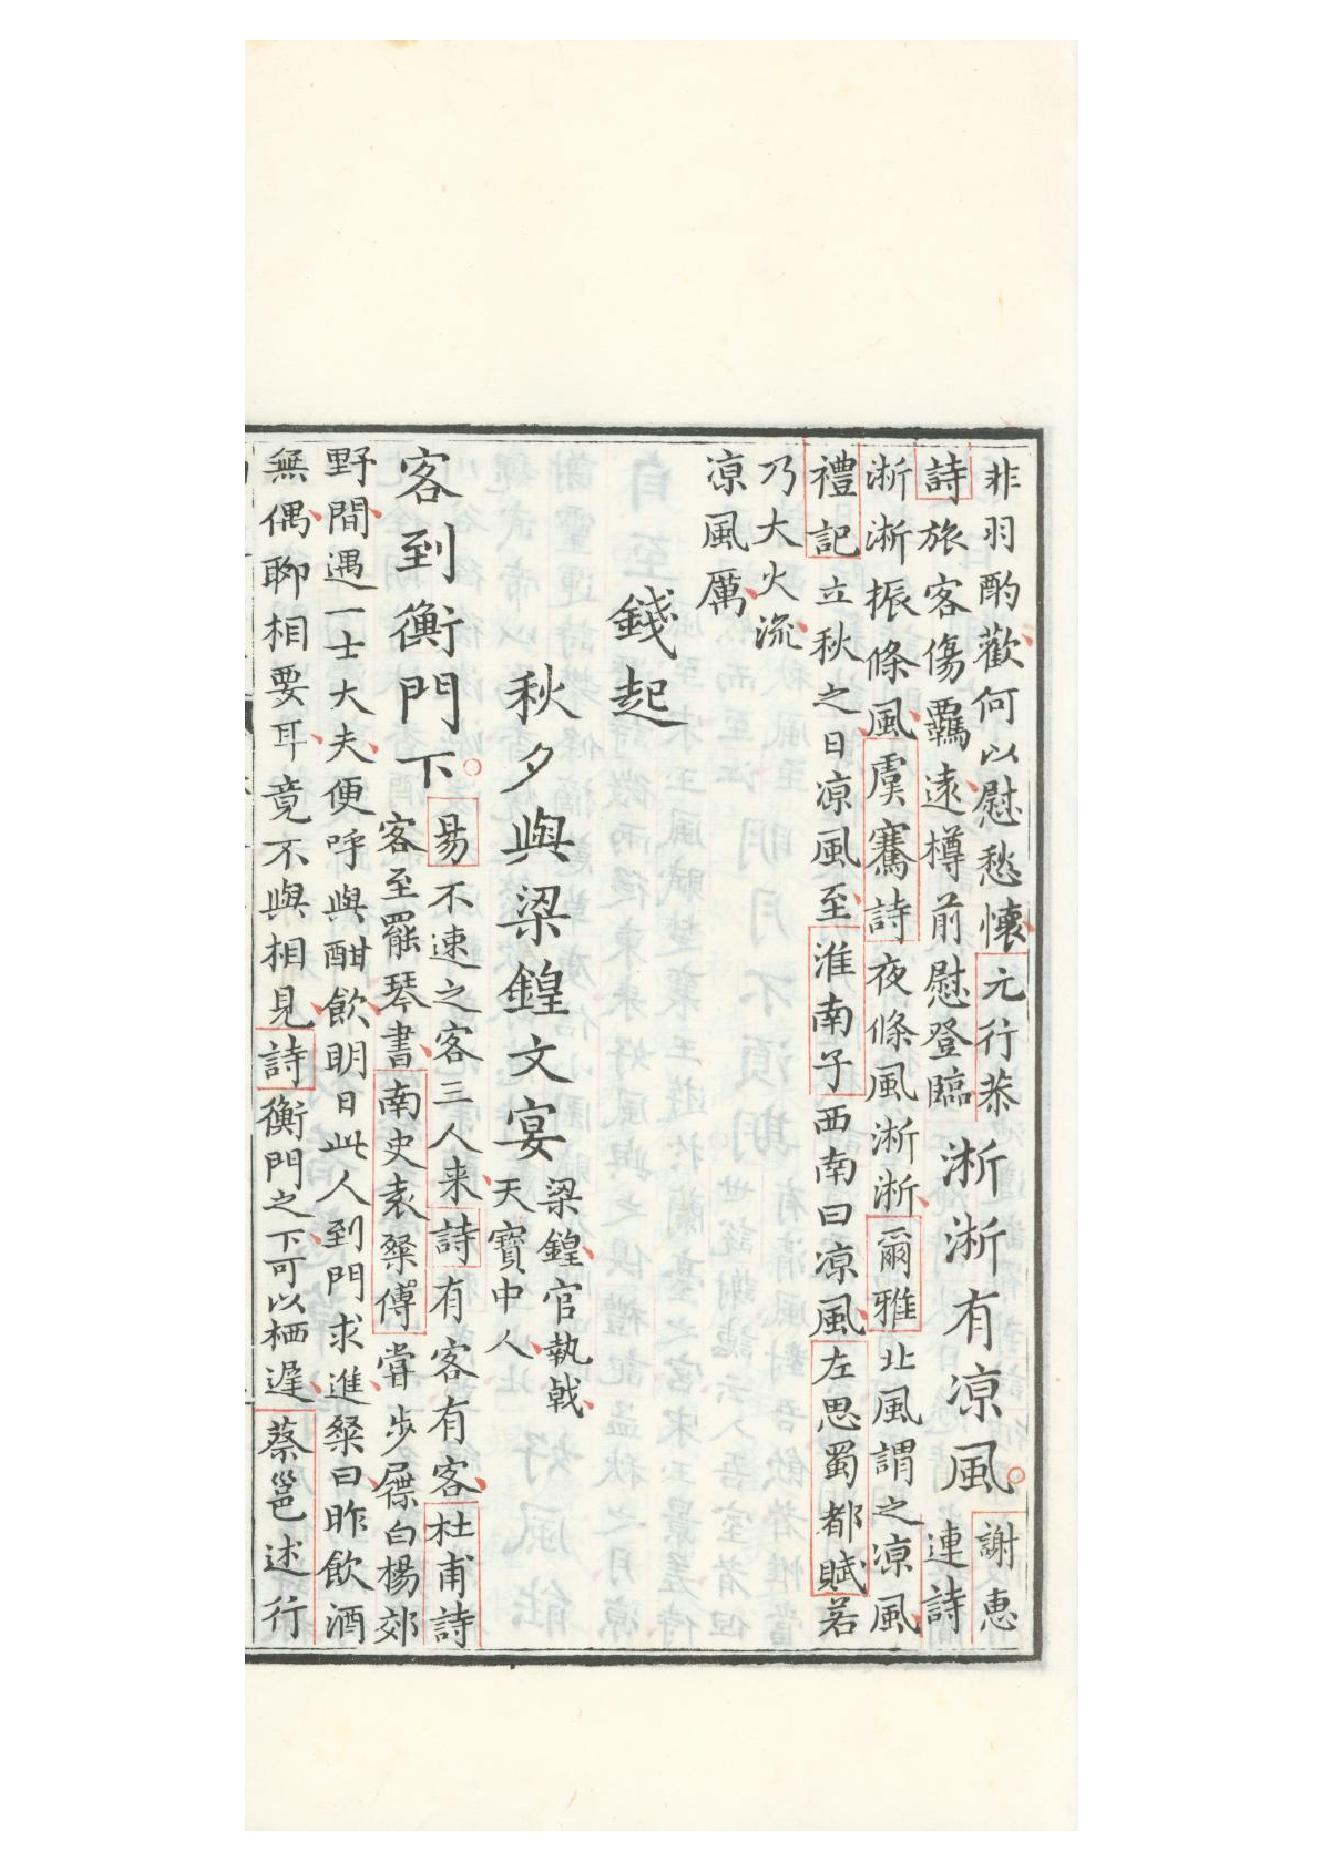 非羽酌歡何以慰愁懷元行恭
詩旅客傷羈遠樽前慰登臨
淅淅有凉風
謝惠
連詩
淅淅振條風虞騫詩夜條風淅淅爾雅北風謂之凉風
禮記立秋之日凉風至淮南子西南曰凉風左思蜀都賦若
乃大火流
凉風厲
錢起
秋夕與梁鍠文宴
梁鍠官執戟
天寶中人
客到衡門下
易不速之客三人来詩有客有客杜甫詩
客至罷琴書南史袁粲傳嘗步屧白楊郊
野間遇一士大夫便呼與酣飲明日此人到門求進粲曰昨飲酒
無偶聊相要耳竟不與相見詩衡門之下可以栖遲蔡邕述行